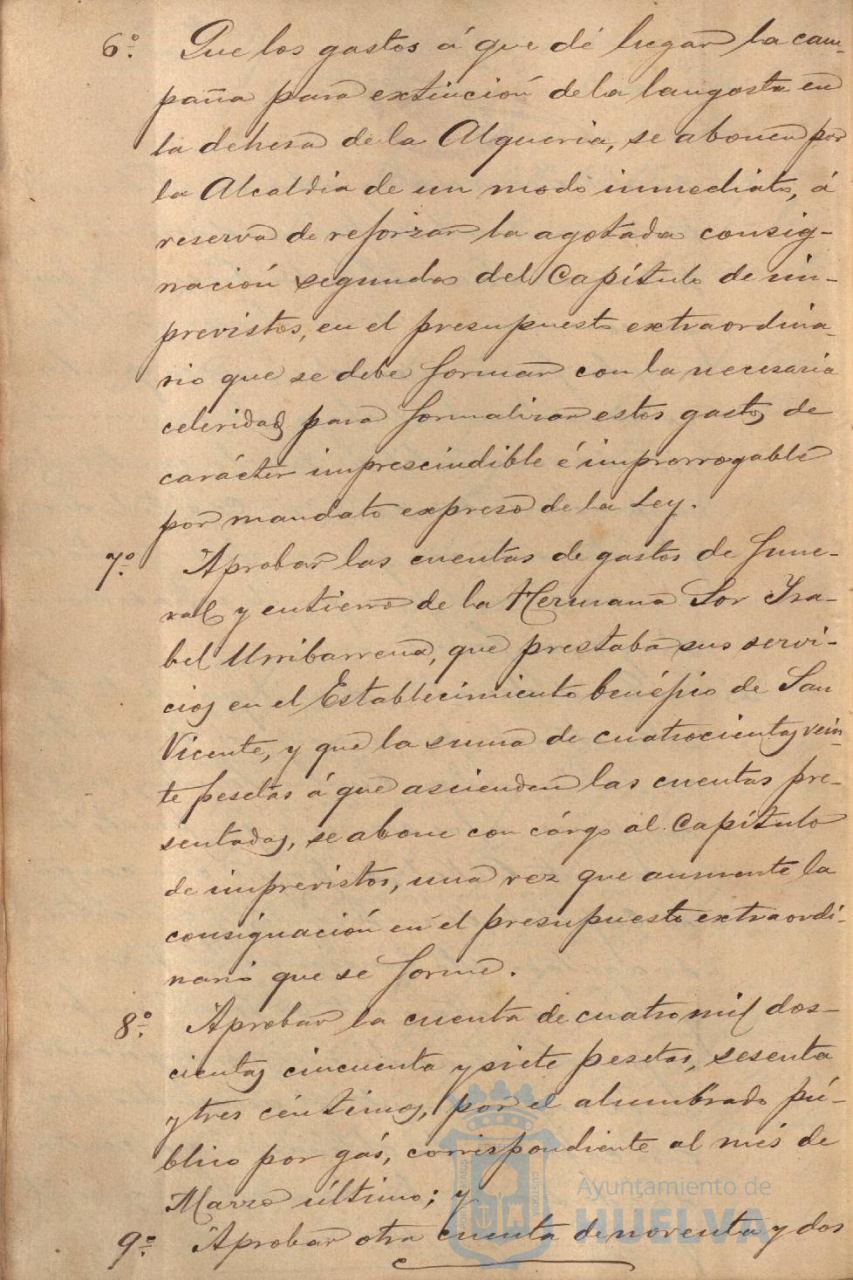 6º. Que los gastos á que dé lugar la cam-
paña para extinción de la langosta en
la dehesa de la Alqueria, se abonen por
la Alcaldia de un modo inmediato, á
reserva de reforzar la agotada consig-
nación segunda del Capítulo de im-
previstos, en el presupuesto extraordina-
rio que se debe formar con la necesaria
celeridad para formalizar estos gastos de
carácter imprescindible é improrrogable
por mandato expreso de la Ley.
7º. Aprobar las cuentas de gastos de fune-
ral y entierro de la Hermana Sor Ysa-
bel Urribarrena, que prestaba sus servi-
cios en el Establecimiento benéfico de San
Vicente, y que la suma de cuatrocientas vein-
te pesetas á que ascienden las cuentas pre-
sentadas, se abone con cárgo al Capítulo
de imprevistos, una vez que aumente la
consignación en el presupuesto extraordi-
nario que se forme.
8º. Aprobar la cuenta de cuatro mil dos-
cientas cincuenta y siete pesetas, sesenta
y tres céntimos, por el alumbrado pú-
blico por gás, correspondiente al més de
Marzo último; y
Ayuntamiento de
HUELVA
9º. Aprobar otra cuenta de noventa y dos